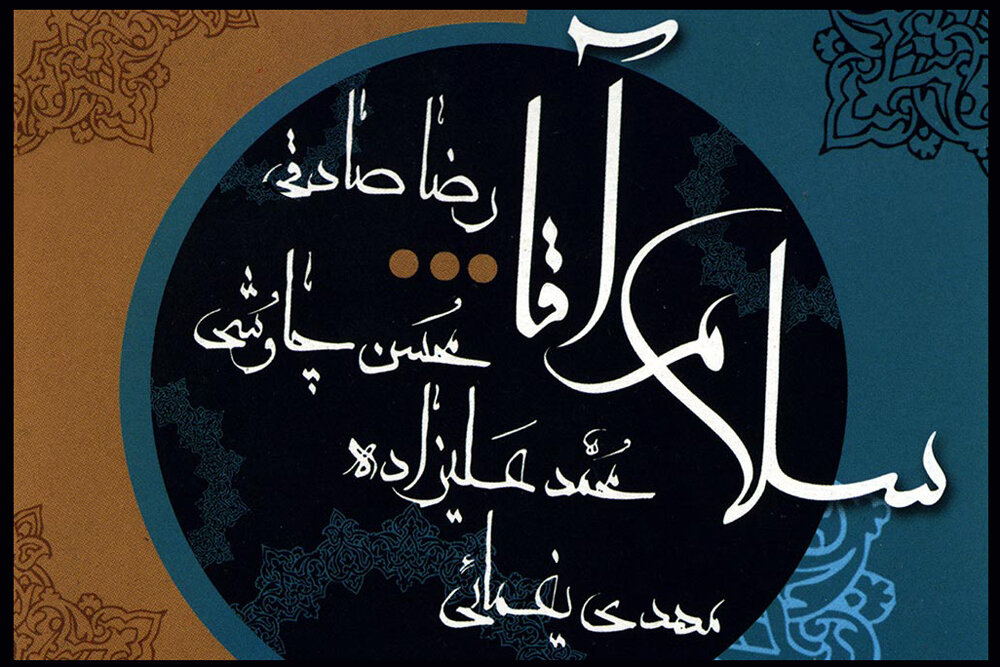 سلام آقا
رضا صادقی
محسن چاوشی
محمد علیزاده
مهدی یغمائی